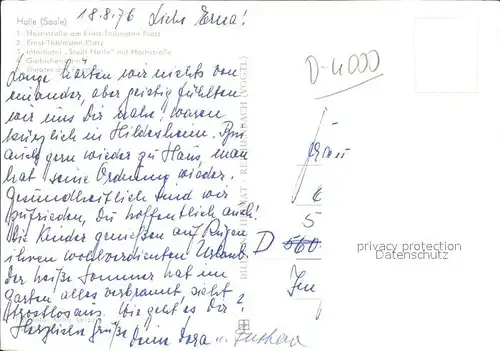 18.8.76 Liebe Erna!
Halle (Saale)
1 Hochstraße am Ernst-Thälmann-Platz
2 Ernst-Thälmann-Platz
3 Interhotel „Stadt Halle" mit Hochstraße
Lange hörten wir nichts von
einander, aber geistig fühlten
wir uns Dir nahe! waren
kürzlich in Hildesheim. Bin
auch gern wieder zu Haus, man
hat seine Ordnung wieder.
Gesundheitlich sind wir
zufrieden, Du hoffentlich auch!
Die Kinder genießen auf Rügen
ihren wohlverdienten Urlaub.
Der heiße Sommer hat im
Garten alles verbrannt, sieht
trostlos aus. Wie geht es Dir?
Herzliche Grüße
Deine Dora u.
BILD HEIMAT REICHENBACH (VOGTL)
D-4000
Frau
5
D 560
privacy protection
Datenschutz